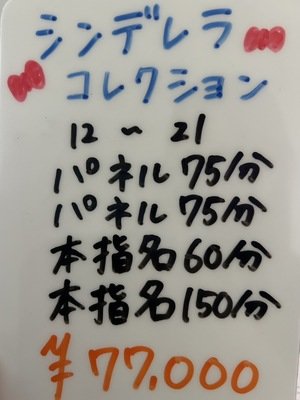 シンデレラ
コレクション
12 ~ 21
パネル 75/分
パネル 75/分
本指名 60/分
本指名 150/分
¥77.000